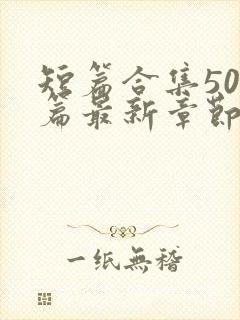 短篇合集50
篇最新章節
一纸無稽